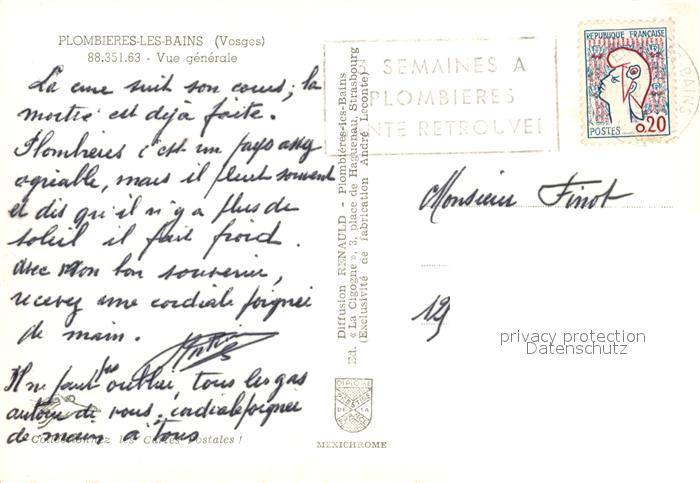 PLOMBIERES-LES-BAINS (Vosges)
88.351.63 - Vue générale
La cure suit son cours; la
moitié est déjà faite.
Plombières c'est un pays assez
agréable, mais il pleut souvent
et dis qu'il n'y a plus de
soleil il fait froid.
Avec mon bon souvenir,
recevez une cordiale poignée
de main.
Il ne faut pas oublier, tous les gas
autour de vous. cordiale poignée
de main à tous
Collectionnez les Cartes Postales !
Diffusion RENAULD - Plombières-les-Bains
Ed. « La Cigogne », 3, place de Haguenau, Strasbourg
(Exclusivité de fabrication André Leconte)
DIPLOME
PRESTIGE
DE LA
FRANCE
MEXICHROME
3 SEMAINES A
PLOMBIERES
NTE RETROUVEE
REPUBLIQUE FRANÇAISE
POSTES 0,20
Monsieur Finot
129
privacy protection
Datenschutz